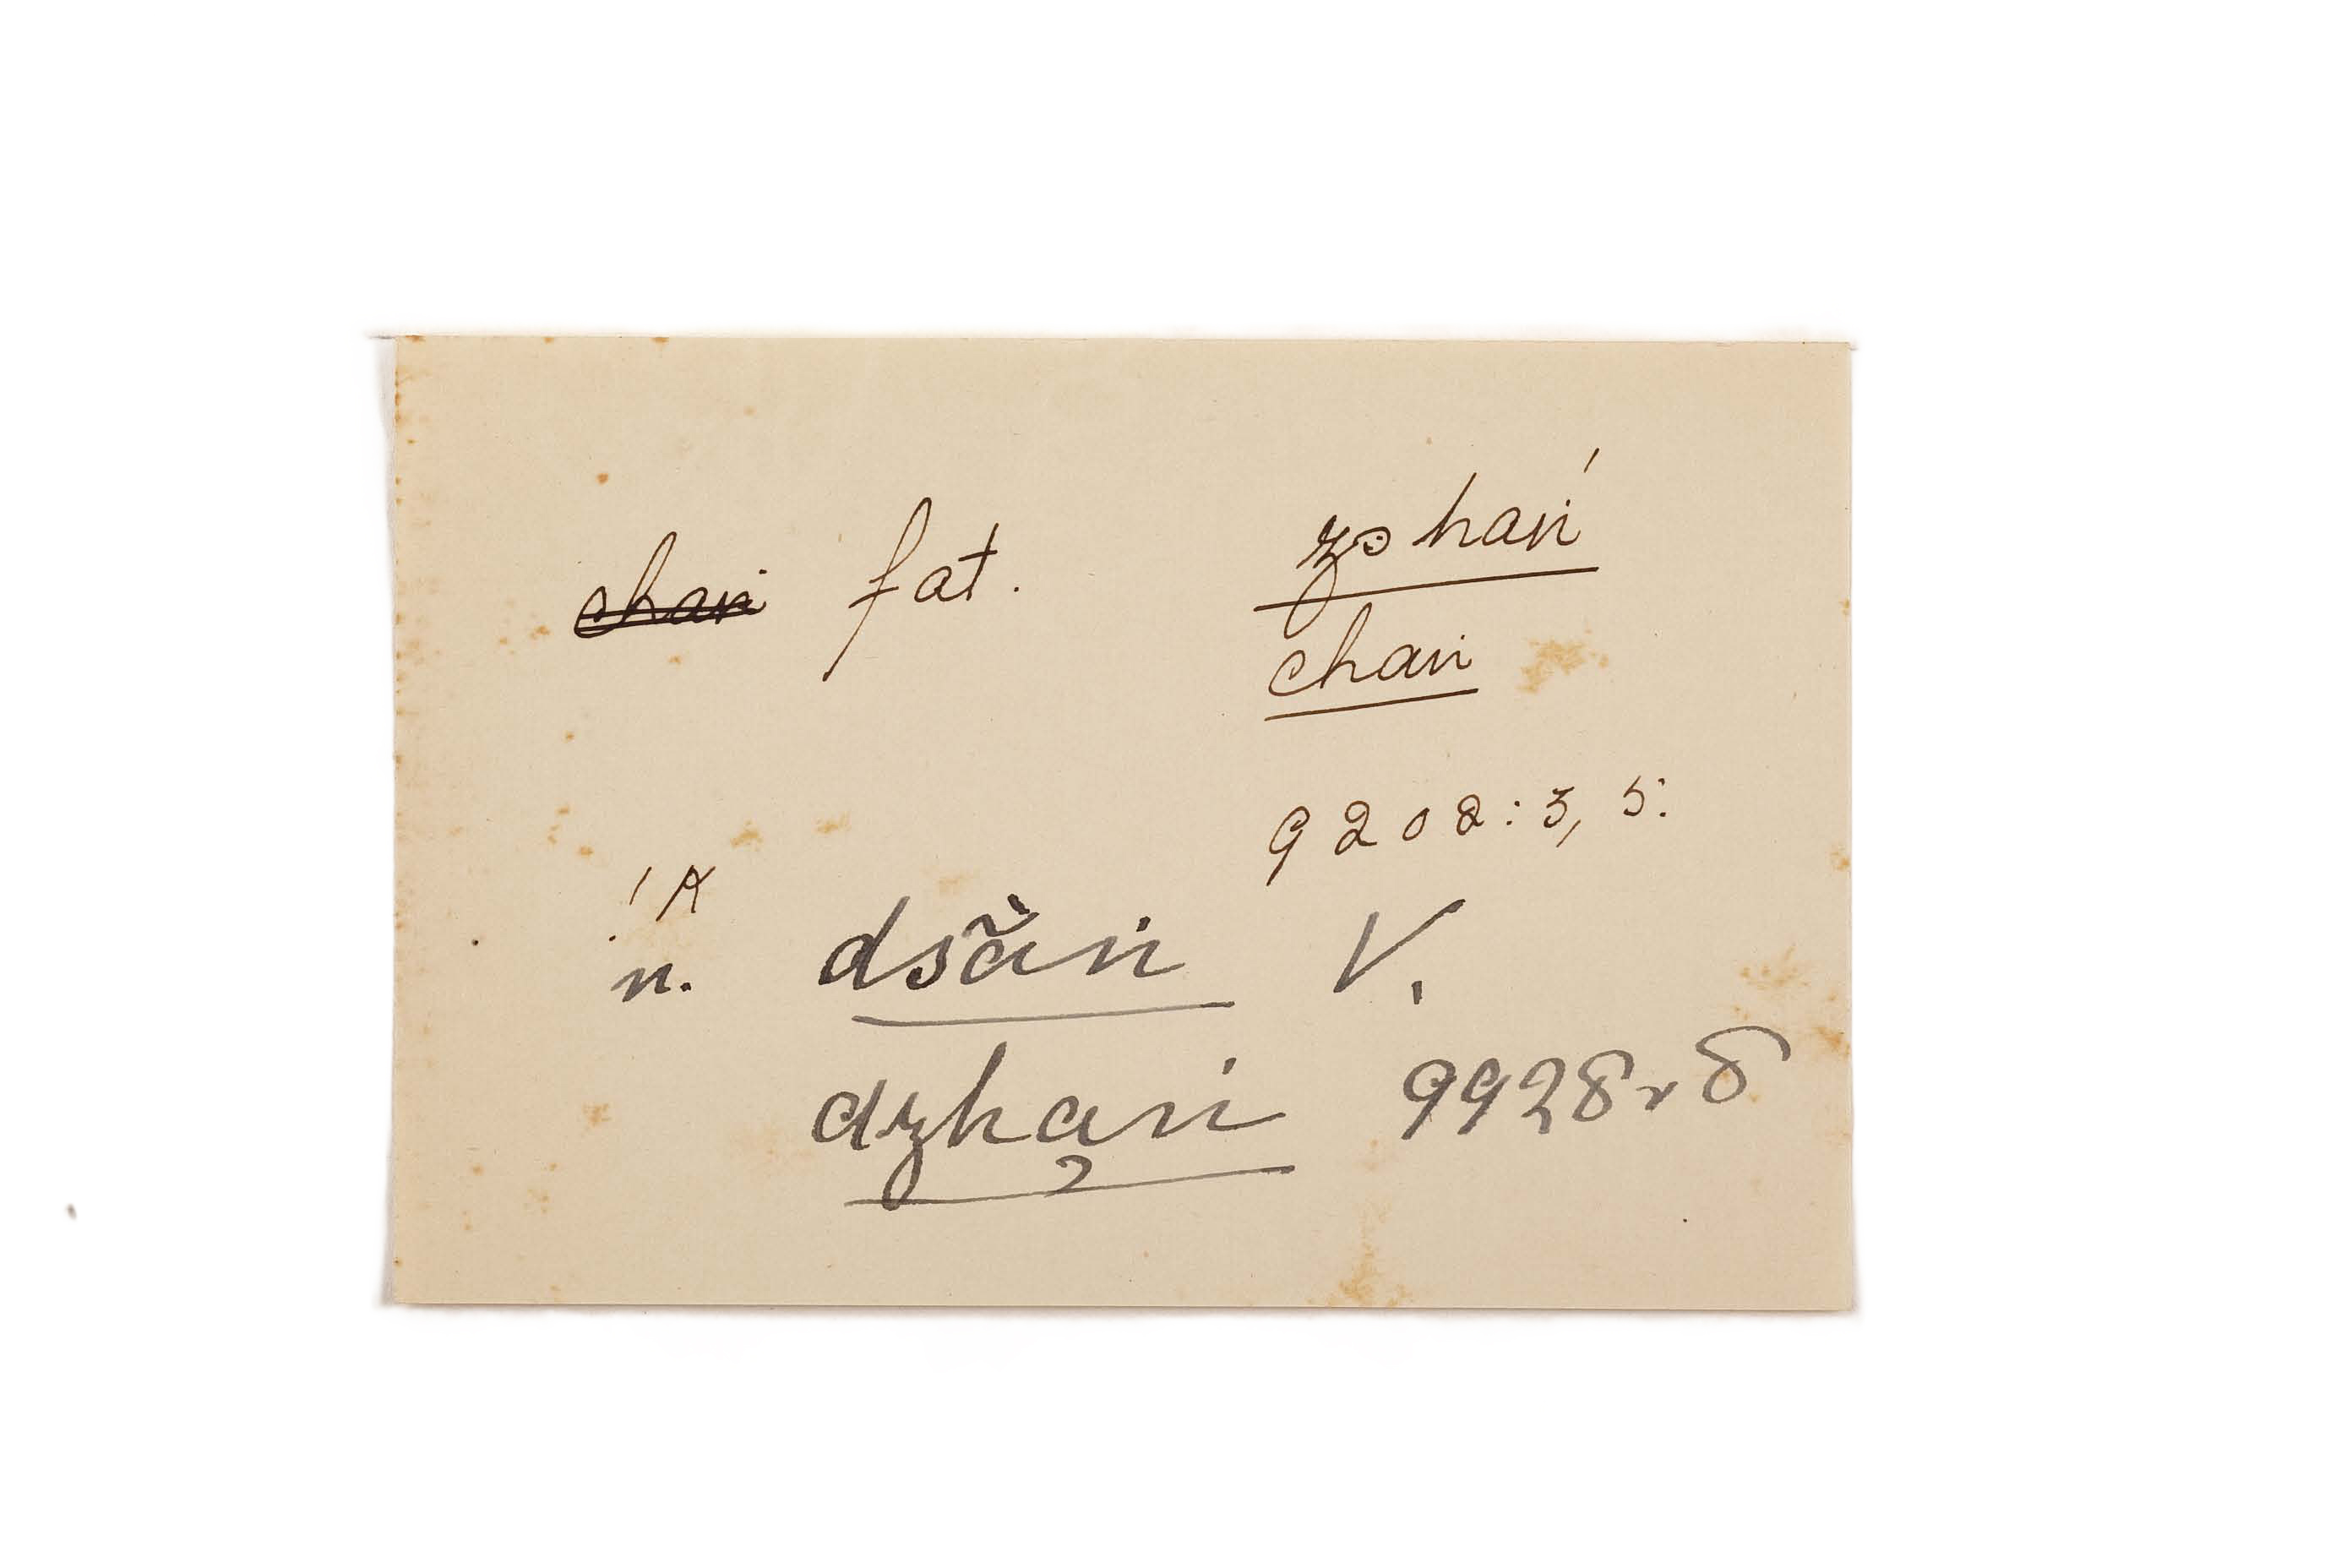 chaṅ fat. zohaṅ'
chaṅ
9202:3, 5.
! A
n. dsãṅ V.
dzhąṅ 9928rδ